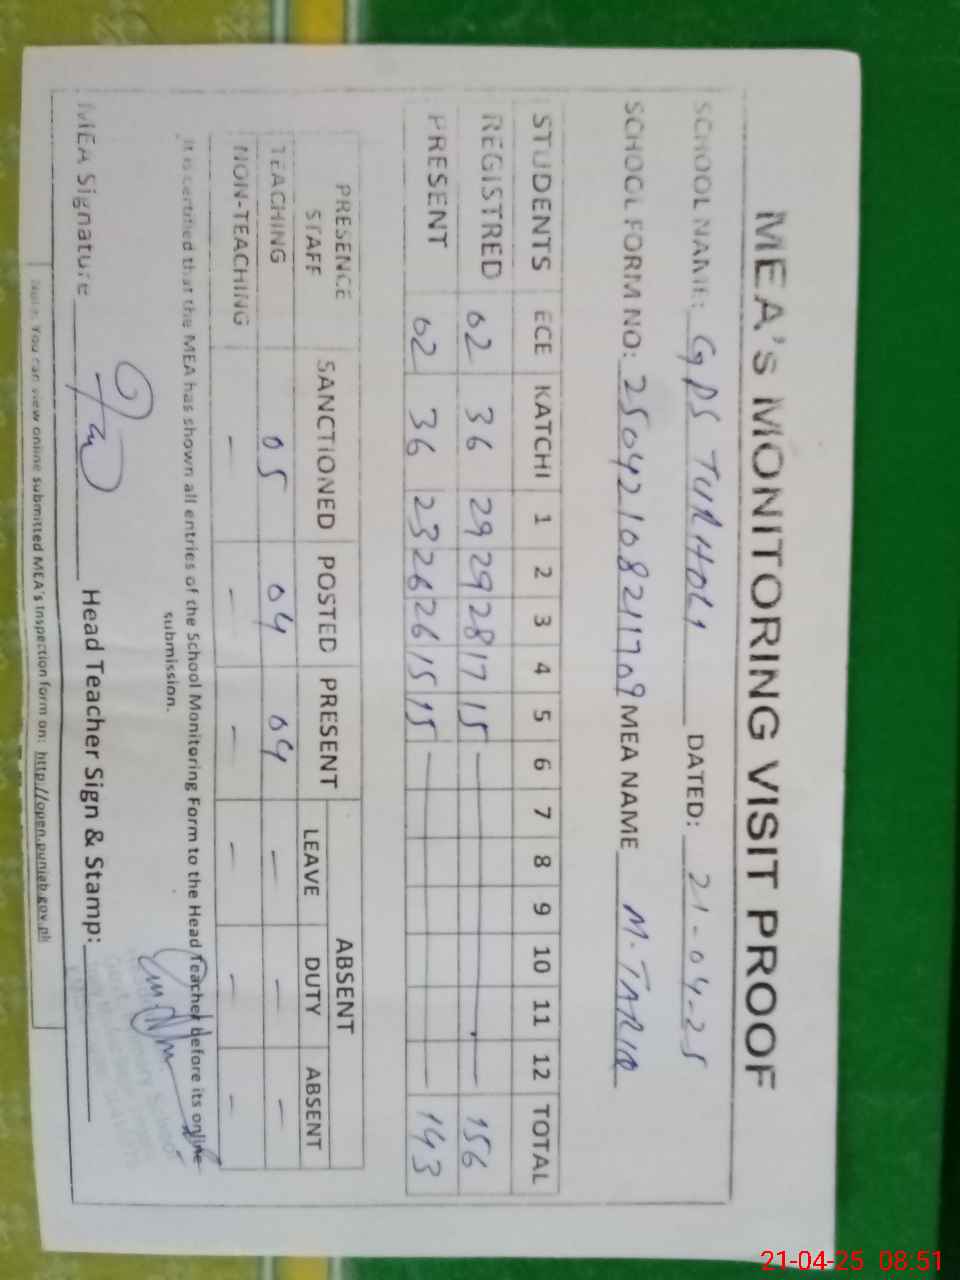 MEA's MONITORING VISIT PROOF
SCHOOL NAME: GPS TURHOLI DATED: 21-04-25
SCHOOL FORM NO: 25042108211709 MEA NAME M. TARIQ
STUDENTS ECE KATCHI 1 2 3 4 5 6 7 8 9 10 11 12 TOTAL
REGISTRED 02 36 29 29 28 17 15 — 156
PRESENT 02 36 23 26 26 15 15 — — 143
PRESENCE STAFF SANCTIONED POSTED PRESENT ABSENT
LEAVE DUTY ABSENT
TEACHING 05 04 04 — — —
NON-TEACHING — — — — — —
It is certified that the MEA has shown all entries of the School Monitoring Form to the Head Teacher before its online
submission.
MEA Signature Head Teacher Sign & Stamp:
Note: You can view online submitted MEA's Inspection form on: http://open.punjab.gov.pk
21-04-25 08:51